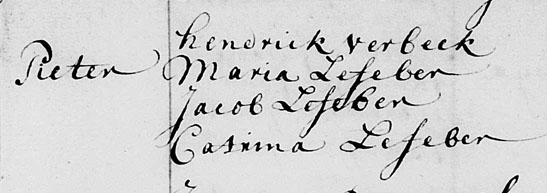 hendrick verbeek
Pieter Maria Lefeber
Jacob Lefeber
Catrina Lefeber